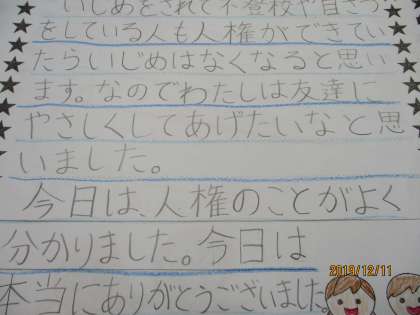 いじめをされて不登校や自さつ
をしている人も人権ができてい
たらいじめはなくなると思い
ます。なのでわたしは友達に
やさしくしてあげたいなと思
いました。
今日は、人権のことがよく
分かりました。今日は
本当にありがとうございました。
2019/12/11